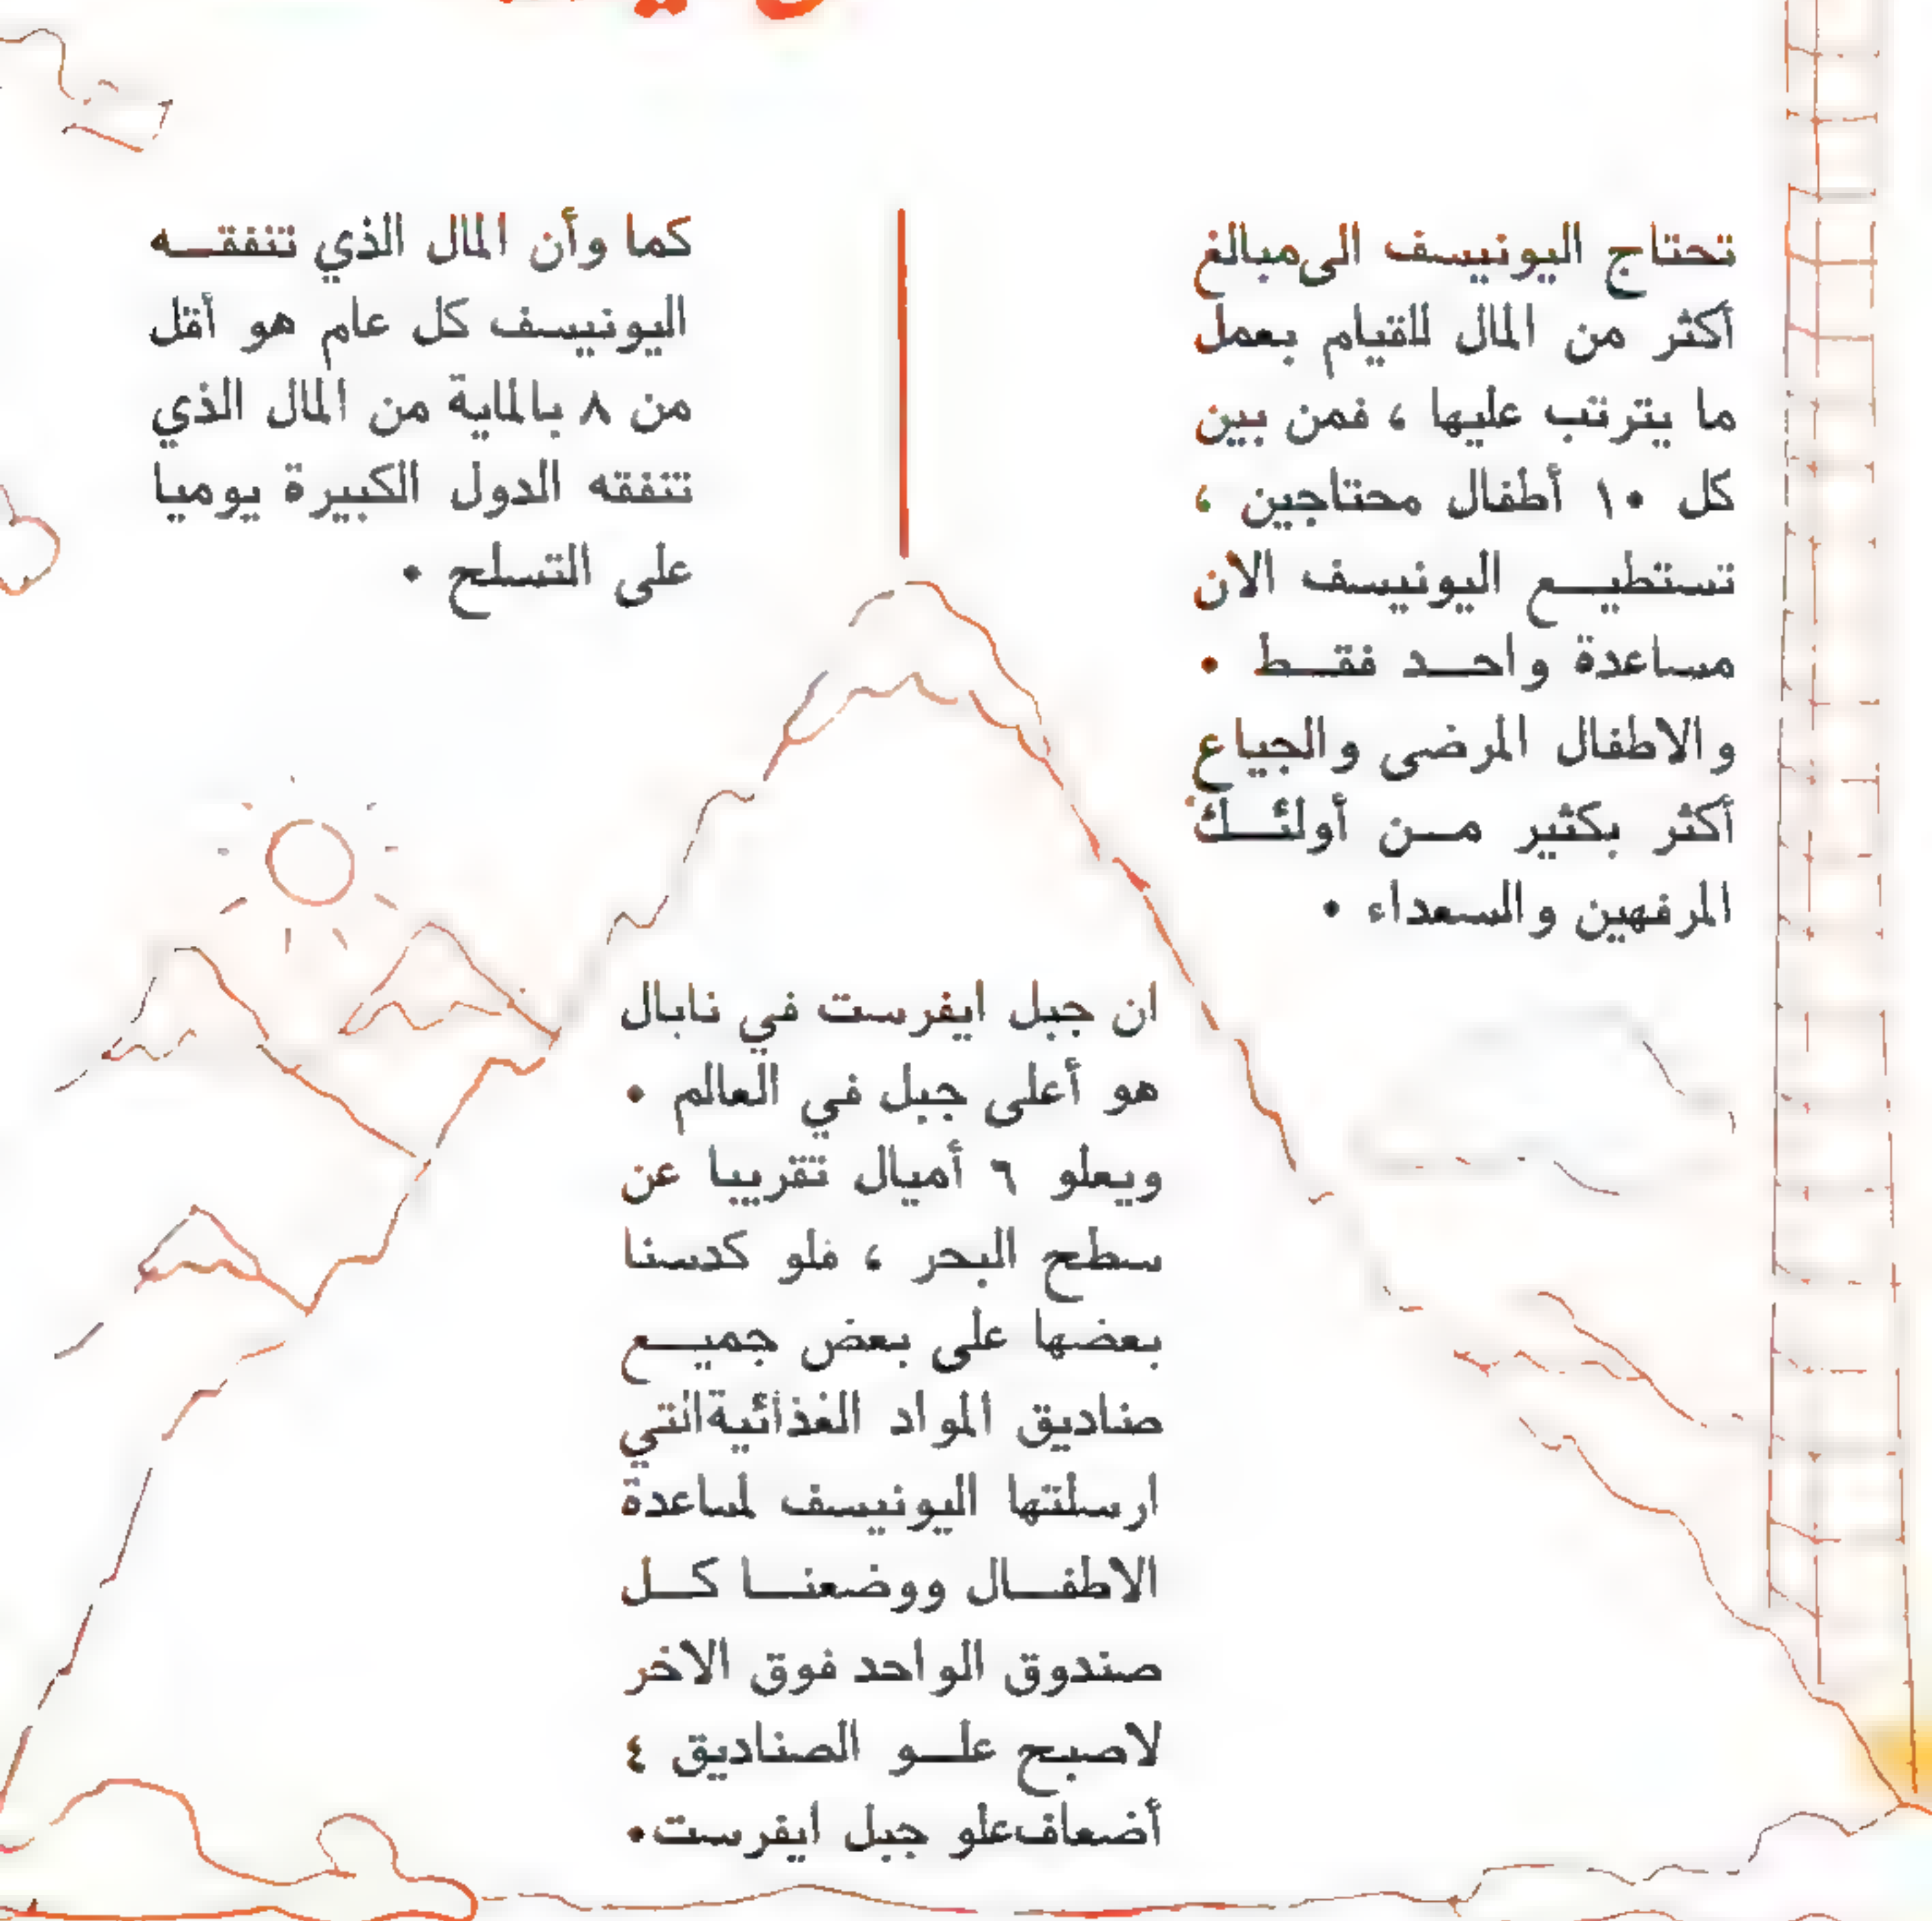 تحتاج اليونيسف الى مبالغ
أكثر من المال للقيام بعمل
ما يترتب عليها ، فمن بين
كل ١٠ أطفال محتاجين ،
تستطيــع اليونيسف الان
مساعدة واحــد فقــط .
والاطفال المرضى والجياع
أكثر بكثير مــن أولئــك
المرفهين والسعداء .
كما وأن المال الذي تنفقــه
اليونيسف كل عام هو أقل
من ٨ بالماية من المال الذي
تنفقه الدول الكبيرة يوميا
على التسلح .
ان جبل ايفرست في نابال
هو أعلى جبل في العالم .
ويعلو ٦ أميال تقريبا عن
سطح البحر ، فلو كدسنا
بعضها على بعض جميــع
صناديق المواد الغذائية التي
ارسلتها اليونيسف لمساعدة
الاطفــال ووضعنــا كــل
صندوق الواحد فوق الاخر
لاصبح علــو الصناديق ٤
أضعاف علو جبل ايفرست.